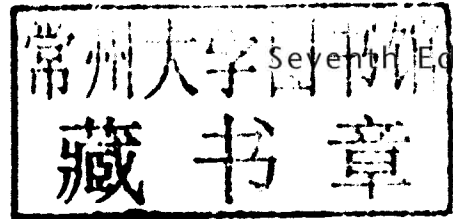 常州大学图书馆
Seventh Ed
藏书章